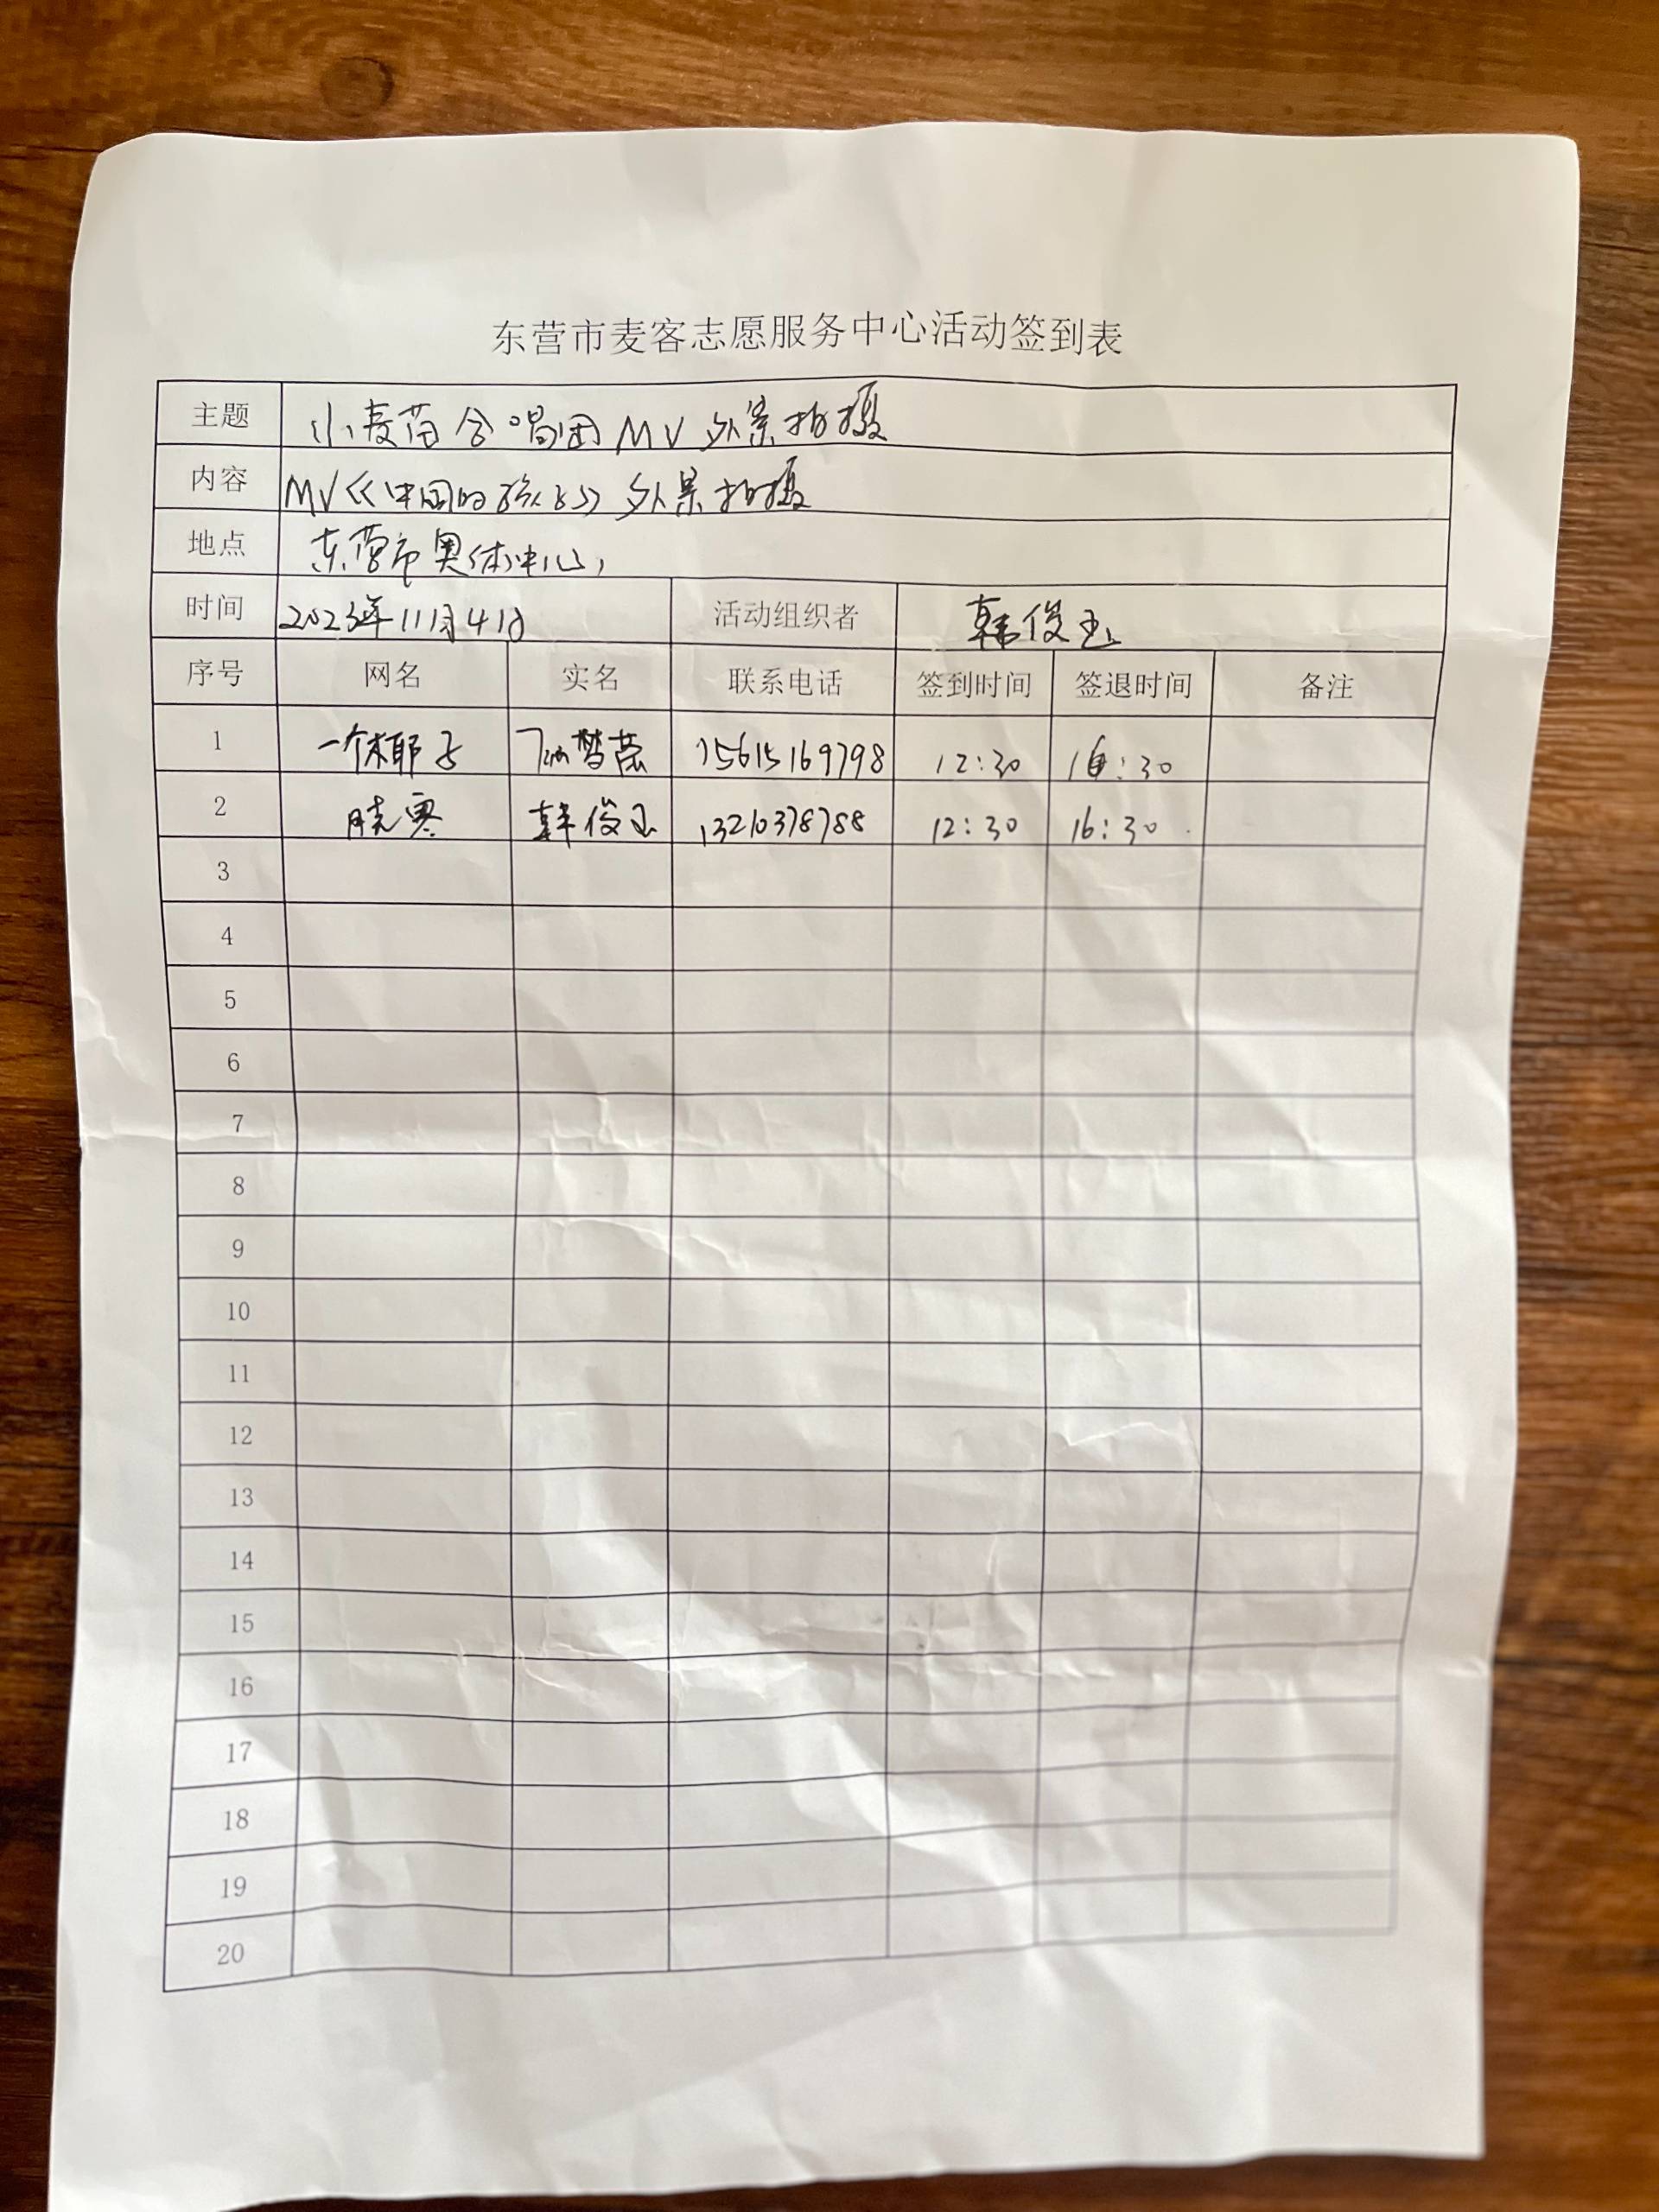 东营市麦客志愿服务中心活动签到表
主题 小麦苗合唱团MV外景拍摄
内容 MV《中国的孩子》外景拍摄
地点 东营市奥体中心
时间 2023年11月4日 活动组织者 韩俊玉
序号 网名 实名 联系电话 签到时间 签退时间 备注
1 一个椰子 15615169798 12:30 16:30
2 晓寒 韩俊玉 13210378788 12:30 16:30
3
4
5
6
7
8
9
10
11
12
13
14
15
16
17
18
19
20